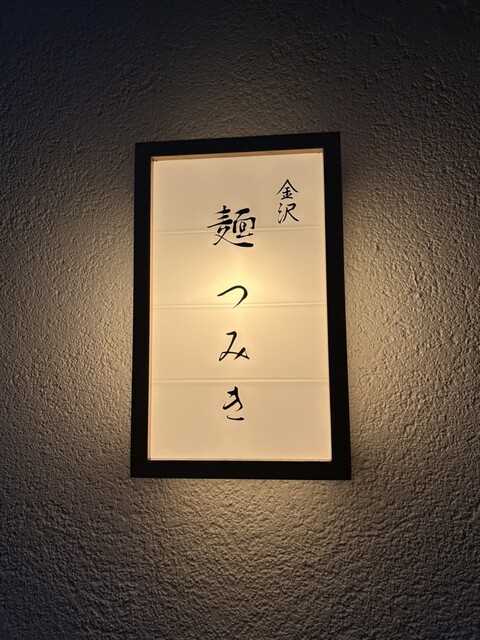 金沢
麺つみき